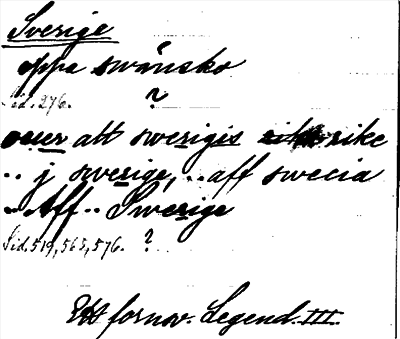 Sverige
oppa swänsko
Sid. 276. ?
ouer att swerigis rike
.. j swerige, .. aff swecia
.. Aff .. Swerige
Sid. 519, 563, 576. ?
Ett fornsv. Legend. III.